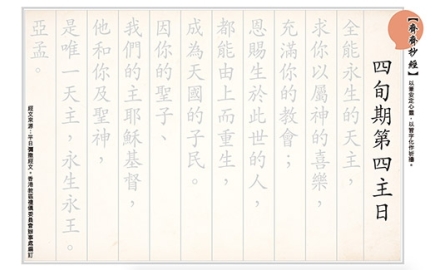 【齊齊抄經】以筆安定心靈，以寫字化作祈禱。
四旬期第四主日
全能永生的天主，
求你以屬神的喜樂，
充滿你的教會；
恩賜生於此世的人，
都能由上而重生，
成為天國的子民。
因你的聖子、
我們的主耶穌基督，
他和你及聖神，
是唯一天主，永生永王。
亞孟。
經文來源：平日彌撒經文，香港教區禮儀委員會辦事處編訂